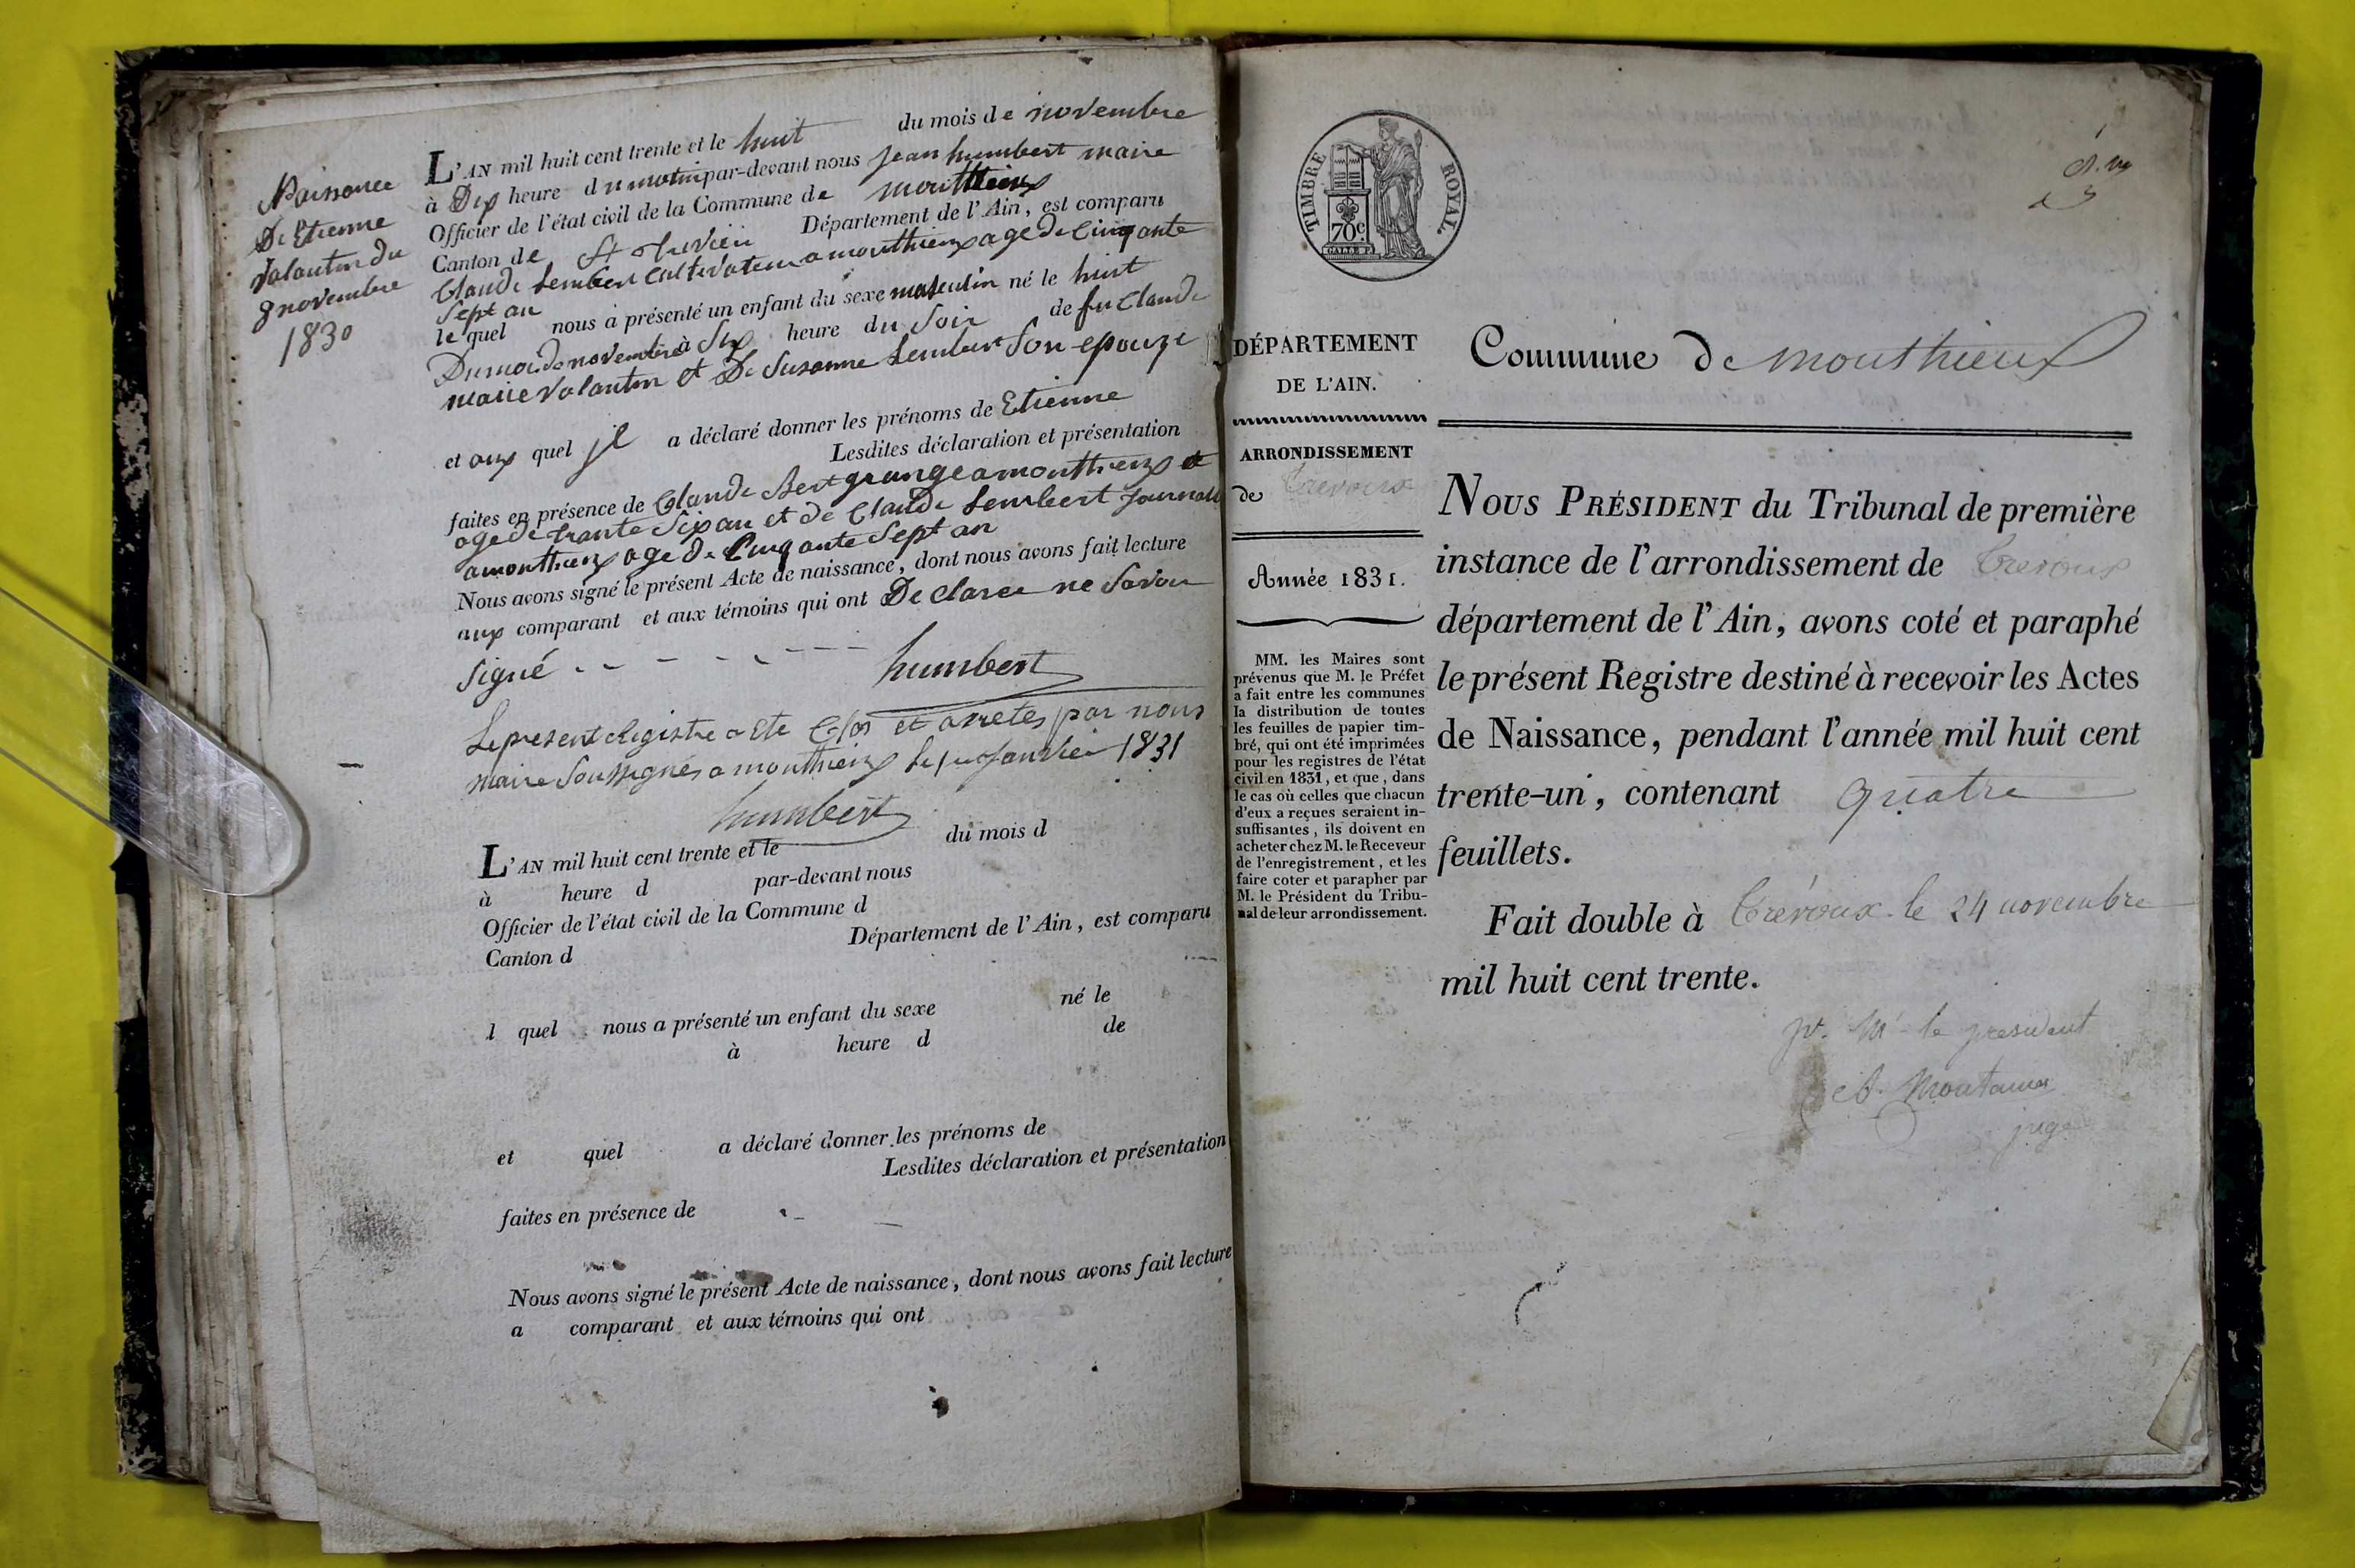 Naissance
De Etienne
Valantin du
8 novembre
1830
L'AN mil huit cent trente et le huit du mois de novembre
à Dix heure du matin par-devant nous jean humbert maire
Officier de l'état civil de la Commune de monthieux
Canton de St trivier Département de l'Ain, est comparu
Claude Lembert cultivateur a monthieux age de Cinqante
Sept an
le quel nous a présenté un enfant du sexe masculin né le huit
Du moi de novembre à Six heure du Soir de feu Claude
marie Valantin et De Susanne Lembert Son epouze
et aux quel jl a déclaré donner les prénoms de Etienne
Lesdites déclaration et présentation
faites en présence de Claude Bert granger a monthieux et
age de trante Six an et de Claude Lembert Journalı
a monthieux age de Cinqante Sept an
Nous avons signé le présent Acte de naissance, dont nous avons fait lecture
aux comparant et aux témoins qui ont De clarer ne Savoir
Signé
humbert
Le present Registre a Ete Clos et arretes par nous
maire Soussignés a monthieux le 1er Janvier 1831
humbert
L'AN mil huit cent trente et le du mois d
à heure d par-devant nous
Officier de l'état civil de la Commune d
Canton d Département de l'Ain, est comparu
l quel nous a présenté un enfant du sexe né le
à heure d de
et quel a déclaré donner les prénoms de
Lesdites déclaration et présentation
faites en présence de
Nous avons signé le présent Acte de naissance, dont nous avons fait lecture
a comparant et aux témoins qui ont
TIMBRE ROYAL
70 c.
DÉPARTEMENT
DE L'AIN.
ARRONDISSEMENT
de Trevoux
Année 1831.
MM. les Maires sont
prévenus que M. le Préfet
a fait entre les communes
la distribution de toutes
les feuilles de papier tim-
bré, qui ont été imprimées
pour les registres de l'état
civil en 1831, et que, dans
le cas où celles que chacun
d'eux a reçues seraient in-
suffisantes, ils doivent en
acheter chez M. le Receveur
de l'enregistrement, et les
faire coter et parapher par
M. le Président du Tribu-
nal de leur arrondissement.
Commune de monthieux
NOUS PRÉSIDENT du Tribunal de première
instance de l'arrondissement de Trevoux
département de l'Ain, avons coté et paraphé
le présent Registre destiné à recevoir les Actes
de Naissance, pendant l'année mil huit cent
trente-un, contenant quatre
feuillets.
Fait double à Trévoux le 24 novembre
mil huit cent trente.
pr. Mr le president
juge